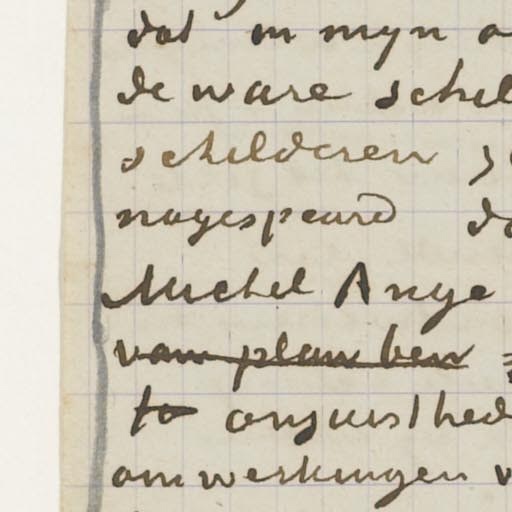 dat in myn o
de ware schil
schilderen z
nagespeurd da
Michel Ange
van plan ben
to onjuisthed
omwerkingen v